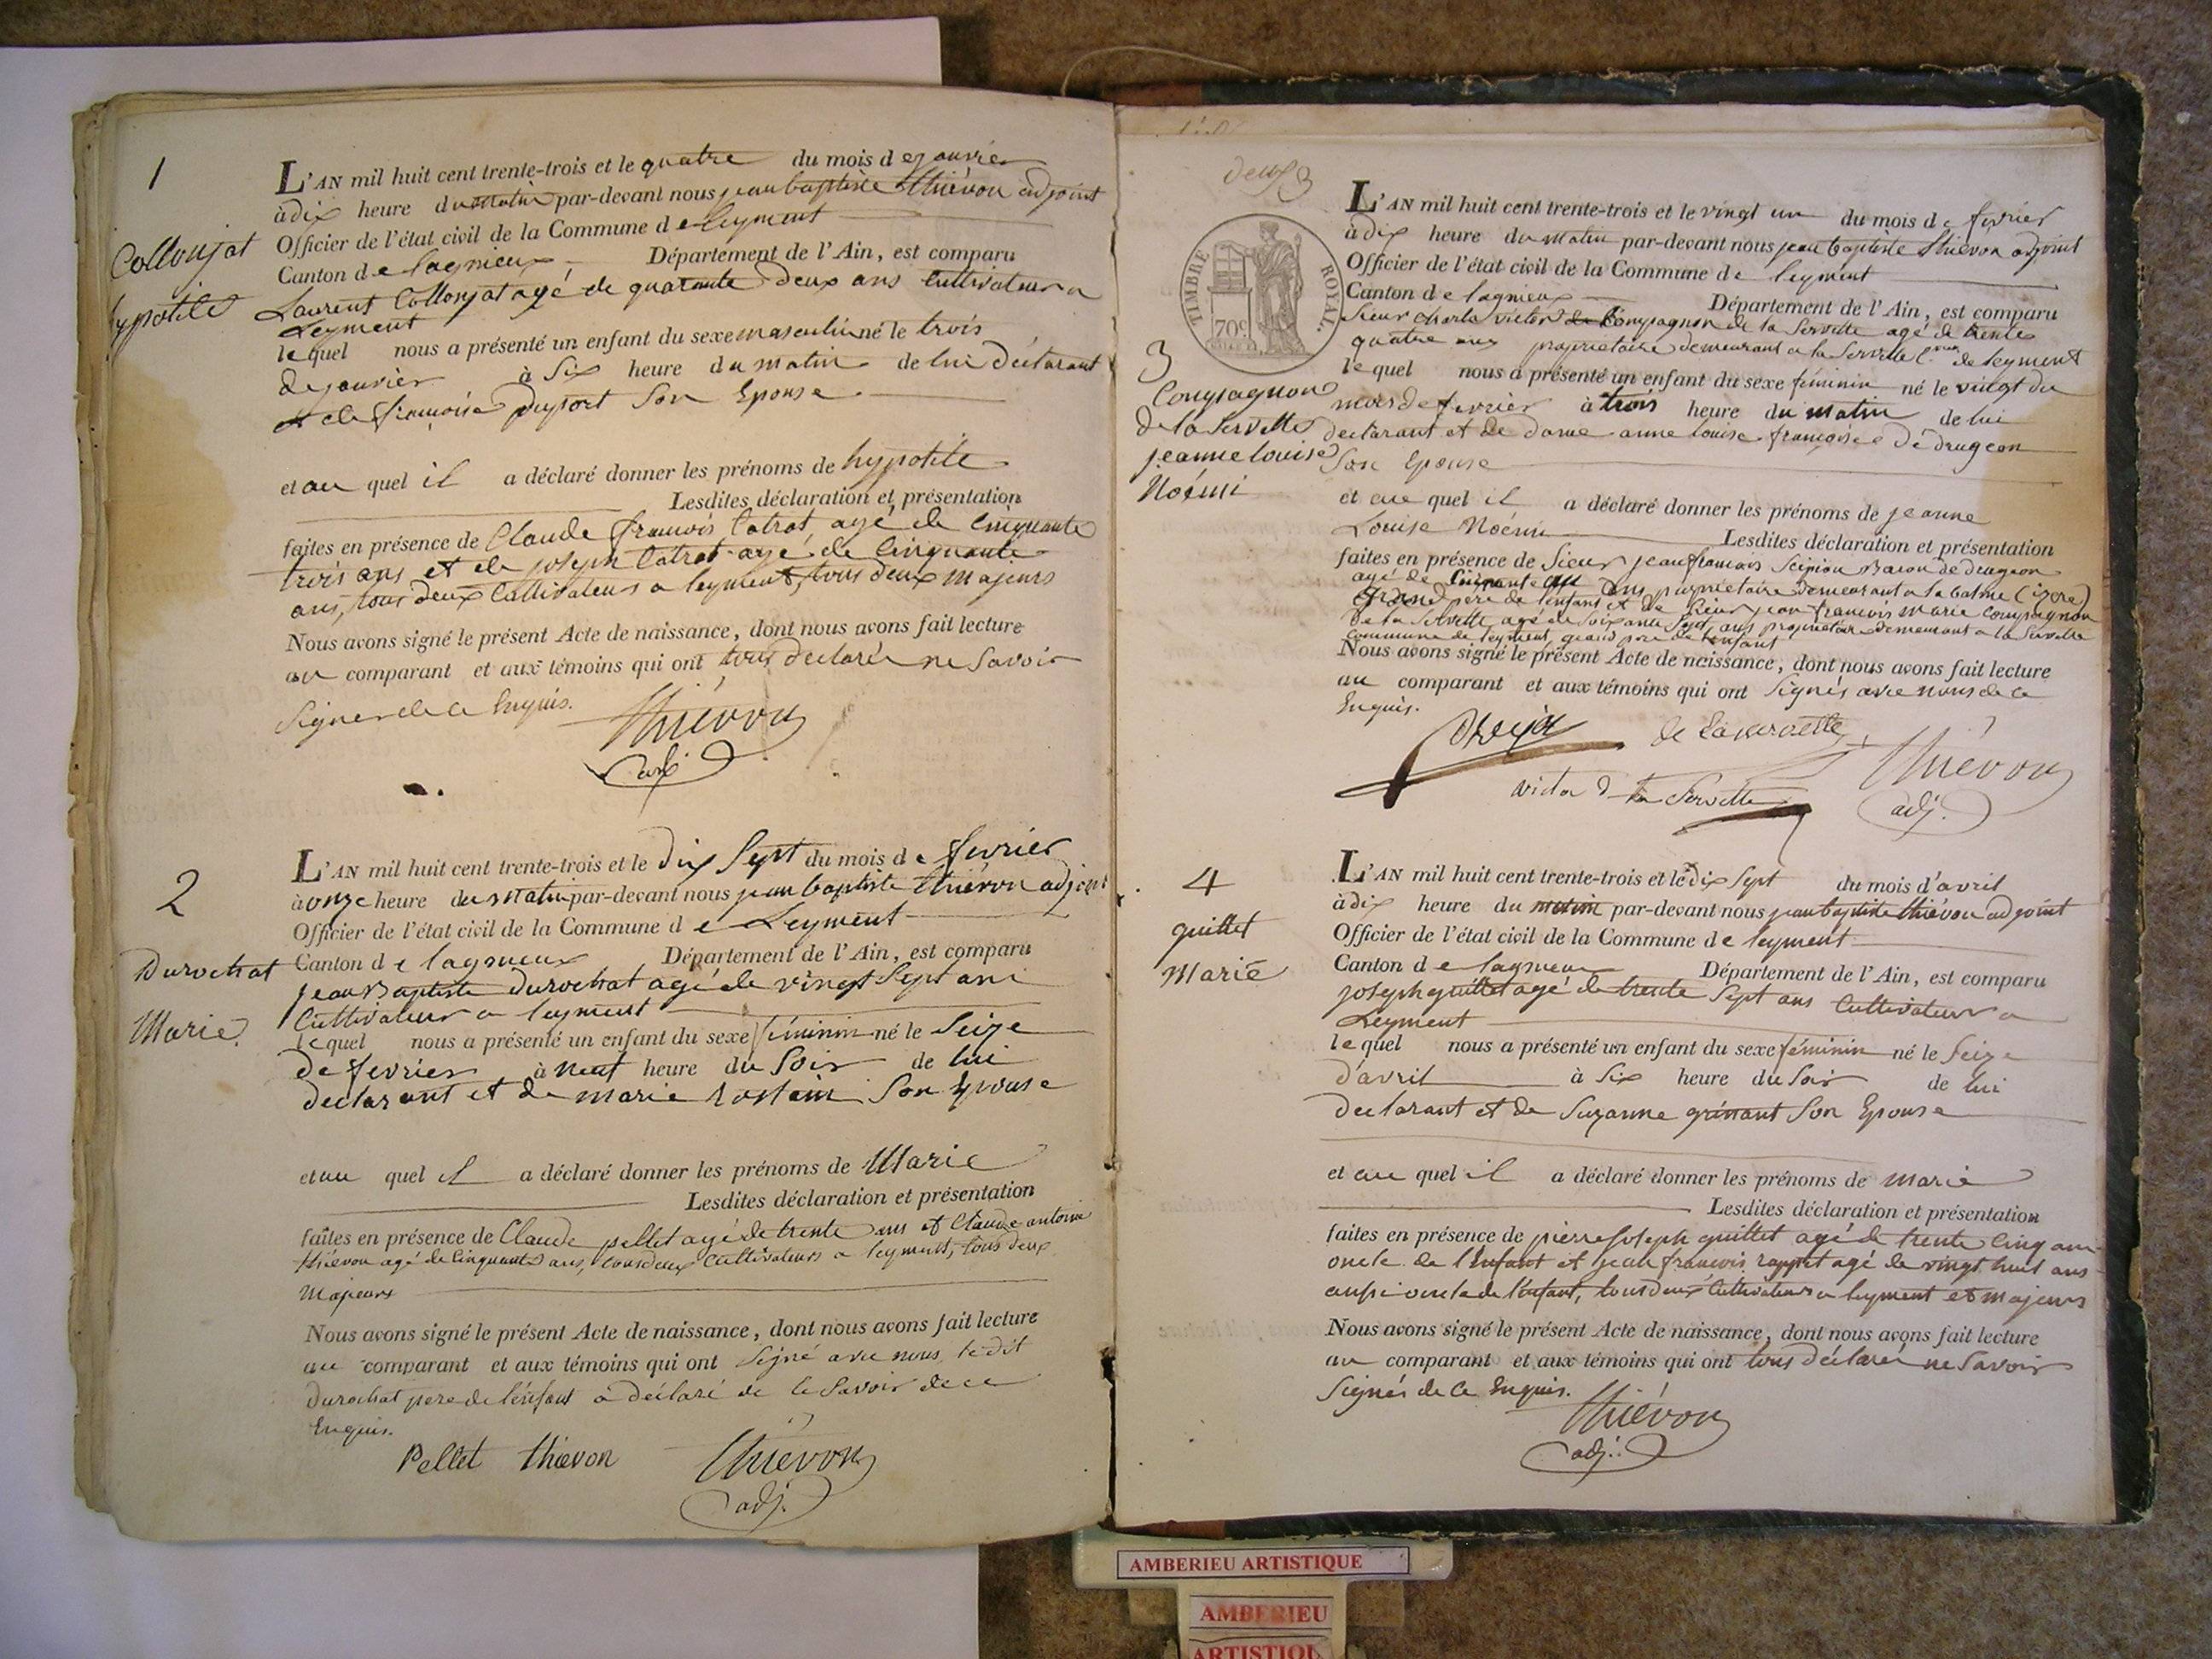 1
Collonjat
hypolite
L'AN mil huit cent trente-trois et le quatre du mois de janvier
à dix heure du matin par-devant nous jean baptiste thiévon adjoint
Officier de l'état civil de la Commune de leyment
Canton de lagnieux Département de l'Ain, est comparu
Laurent Collonjat agé de quarante deux ans Cultivateur a
Leyment
lequel nous a présenté un enfant du sexe masculin né le trois
de janvier à Six heure du matin de lui déclarant
et de françoise Duport Son Epouse
et au quel il a déclaré donner les prénoms de hypolite
Lesdites déclaration et présentation
faites en présence de Claude francois Catrat agé de Cinquante
trois ans et de joseph Catrat agé de Cinquante
ans, tous deux Cultivateurs a leyment, tous deux majeurs
Nous avons signé le présent Acte de naissance, dont nous avons fait lecture
au comparant et aux témoins qui ont tous déclarés ne Savoir
Signer de ce Enquis.
Thiévon
adj.
2
Durochat
Marie.
L'AN mil huit cent trente-trois et le dix Sept du mois de fevrier
à onze heure du matin par-devant nous jean baptiste thiévon adjoint
Officier de l'état civil de la Commune de Leyment
Canton de lagnieux Département de l'Ain, est comparu
jean Baptiste Durochat agé de vingt Sept ans
Cultivateur a leyment
lequel nous a présenté un enfant du sexe féminin né le Seize
de fevrier à neuf heure du Soir de lui
declarant et de marie rostain Son Epouse
et au quel il a déclaré donner les prénoms de Marie
Lesdites déclaration et présentation
faites en présence de Claude pellet agé de trente ans et Claude antoine
thiévon agé de Cinquante ans, tous deux Cultivateurs a leyment, tous deux
Majeurs
Nous avons signé le présent Acte de naissance, dont nous avons fait lecture
au comparant et aux témoins qui ont Signé avec nous, le dit
Durochat pere de l'enfant a déclaré ne le Savoir de ce
Enquis.
Pellet thievon Thiévon
adj.
deux
TIMBRE ROYAL.
70c
3
Compagnon
de la Servette
jeanne louise
Noémi
L'AN mil huit cent trente-trois et le vingt un du mois de fevrier
à dix heure du matin par-devant nous jean baptiste thiévon adjoint
Officier de l'état civil de la Commune de leyment
Canton de lagnieux Département de l'Ain, est comparu
Sieur Charle victor de Compagnon de la Servette agé de trente
quatre ans propriétaire demeurant a la Servette Cne de leyment
lequel nous a présenté un enfant du sexe féminin né le vingt du
mois de fevrier à trois heure du matin de lui
declarant et de dame anne louise françoise de drugeon
Son Epouse
et au quel il a déclaré donner les prénoms de jeanne
Louise Noémi
Lesdites déclaration et présentation
faites en présence de Sieur jean françois Scipion Baron de drugeon
agé de Cinquante ans propriétaire demeurant a la balme (isere)
Grand pere de l'enfant et de Sieur jean francois marie Compagnon
de la Servette, agé de Soixante Sept ans propriétaire demeurant a la Servette
Commune de leyment, grand pere de l'enfant
Nous avons signé le présent Acte de naissance, dont nous avons fait lecture
au comparant et aux témoins qui ont Signés avec nous de ce
Enquis.
de Laservette
victor d la Servette
Thiévon
adj.
4
guillet
Marie
L'AN mil huit cent trente-trois et le dix Sept du mois d'avril
à dix heure du matin par-devant nous jean baptiste thiévon adjoint
Officier de l'état civil de la Commune de leyment
Canton de lagnieux Département de l'Ain, est comparu
joseph guillet agé de trente Sept ans Cultivateur a
Leyment
lequel nous a présenté un enfant du sexe féminin né le Seize
d'avril à Six heure du Soir de lui
declarant et de Suzanne grinant Son Epouse
et au quel il a déclaré donner les prénoms de marie
Lesdites déclaration et présentation
faites en présence de pierre Joseph guillet agé de trente Cinq ans
oncle de l'Enfant et jean francois rappet agé de vingt huit ans
aussi oncle de l'enfant, tous deux Cultivateurs a leyment et majeurs
Nous avons signé le présent Acte de naissance, dont nous avons fait lecture
au comparant et aux témoins qui ont tous déclarés ne Savoir
Signés de ce Enquis.
Thiévon
adj.
AMBERIEU ARTISTIQUE
AMBERIEU
ARTISTIQU